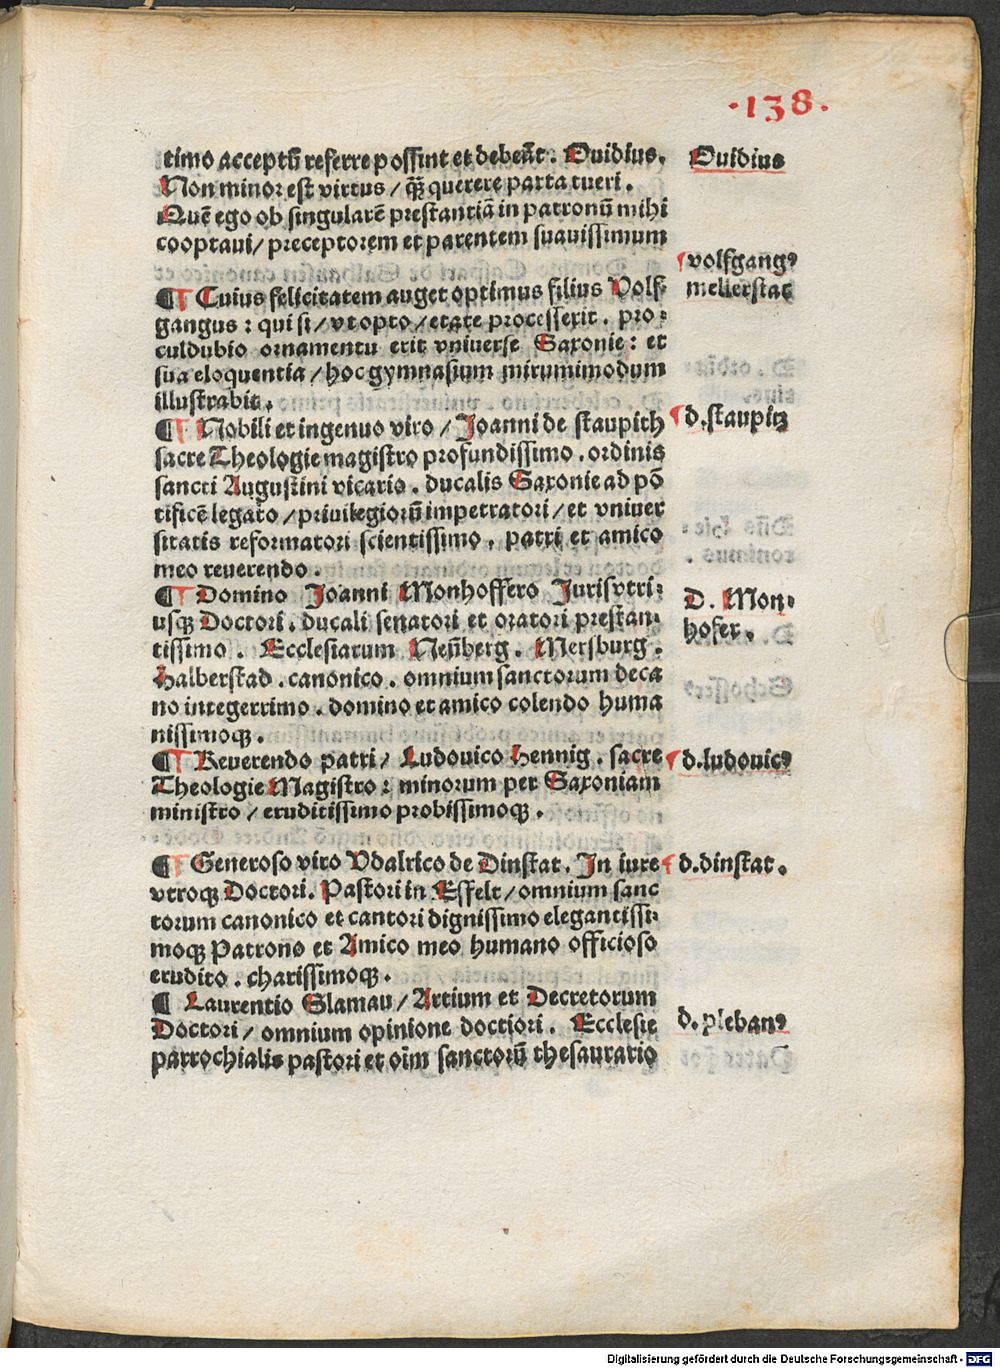 ·138·
timo acceptū referre possint et debeāt. Ouidius. Ouidius
Non minor est virtus / q̄ꝫ querere parta tueri.
Quē ego ob singularē prestantiā in patronū mihi
cooptaui / preceptorem et parentem suauissimum
¶ Cuius felicitatem auget optimus filius Volf- volfgangꝰ mellerstat
gangus: qui si / vt opto / etate processerit. pro-
culdubio ornamentu erit vniuerse Saxonie: et
sua eloquentia / hoc gymnasium mirumimodum
illustrabit.
¶ Nobili et ingenuo viro / Joanni de staupitzh d. staupitz
sacre Theologie magistro profundissimo. ordinis
sancti Augustini vicario. ducalis Saxonie ad pō
tificē legato / priuilegiorū impetratori / et vniuer
sitatis reformatori scientissimo. patri et amico
meo reuerendo.
¶ Domino Joanni Monhoffero Jurisvtri- D. Mon-
usqꝫ Doctori. ducali senatori et oratori prestan- hofer.
tissimo. Ecclesiarum Neñberg. Mersburg.
Halberstad. canonico. omnium sanctorum deca
no integerrimo. domino et amico colendo huma
nissimoqꝫ.
¶ Reuerendo patri / Ludouico Hennig. sacre d. ludouicꝰ
Theologie Magistro: minorum per Saxoniam
ministro / eruditissimo probissimoqꝫ.
¶ Generoso viro Vdalrico de Dinstat. In iure d. dinstat.
vtroqꝫ Doctori. Pastori in Effelt / omnium sanc
torum canonico et cantori dignissimo elegantissi-
moqꝫ Patrono et Amico meo humano officioso
erudito. charissimoqꝫ.
¶ Laurentio Slamau / Artium et Decretorum
Doctori / omnium opinione doctiori. Ecclesie d. plebanꝰ
parrochialis pastori et oīm sanctorū thesaurario
Digitalisierung gefördert durch die Deutsche Forschungsgemeinschaft - DFG